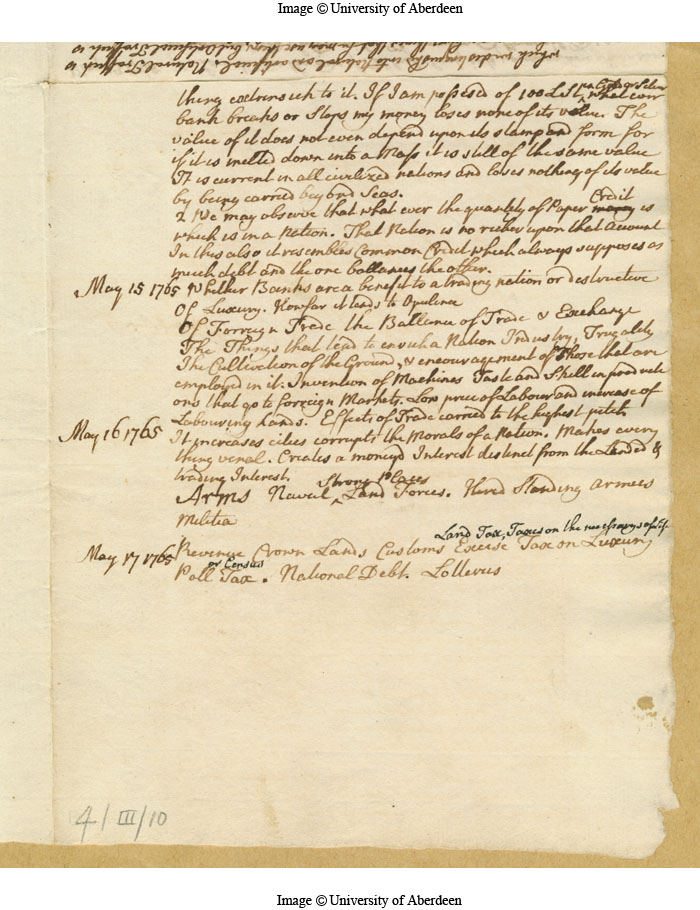 Image © University of Aberdeen
which we distinguish into Natural and artificial. Natural Traffick is
thing extrinsick to it. If I am possesed of 100 L St in Gold or Silver what ever
bank breaks or Stops my money loses none of its value. The
value of it does not even depend upon its stamp and form for
if it is melted down into a Mass it is still of the same value
It is current in all civilized nations and loses nothing of its value
by being carried beyond Seas.
2 We may observe that what ever the quantity of Paper money Credit is
which is in a Nation. That Nation is no richer upon that Account
In this also it resembles Common Credit which always supposes as
much debt and the one ballances the other.
May 15 1765 Whether Banks are a benefit to a trading nation or destructive
Of Luxury. How far it leads to Opulence
Of Forreign Trade the Ballance of Trade & Exchange
The Things that tend to enrich a Nation Industry, Frugality
The Cultivation of the Ground, & encouragement of Those that are
employed in it. Invention of Machines Taste and Skill in producti
ons that go to foreign Markets. Low price of Labour and increase of
Labouring hands. Effects of Trade carried to the highest pitch
May 16 1765 It increases cities corrupts the Morals of a Nation. Makes every
thing venal. Creates a moneyd Interest distinct from the Landed &
trading Interest.
Arms Naval Strong places Land Forces. Hired Standing armies
Militia
May 17 1765 Revenue Crown Lands Customs Excise Land Tax, Taxes on the necessarys of life Tax on Luxury
Poll Tax or Census. National Debt. Lotterys
4/III/10
Image © University of Aberdeen